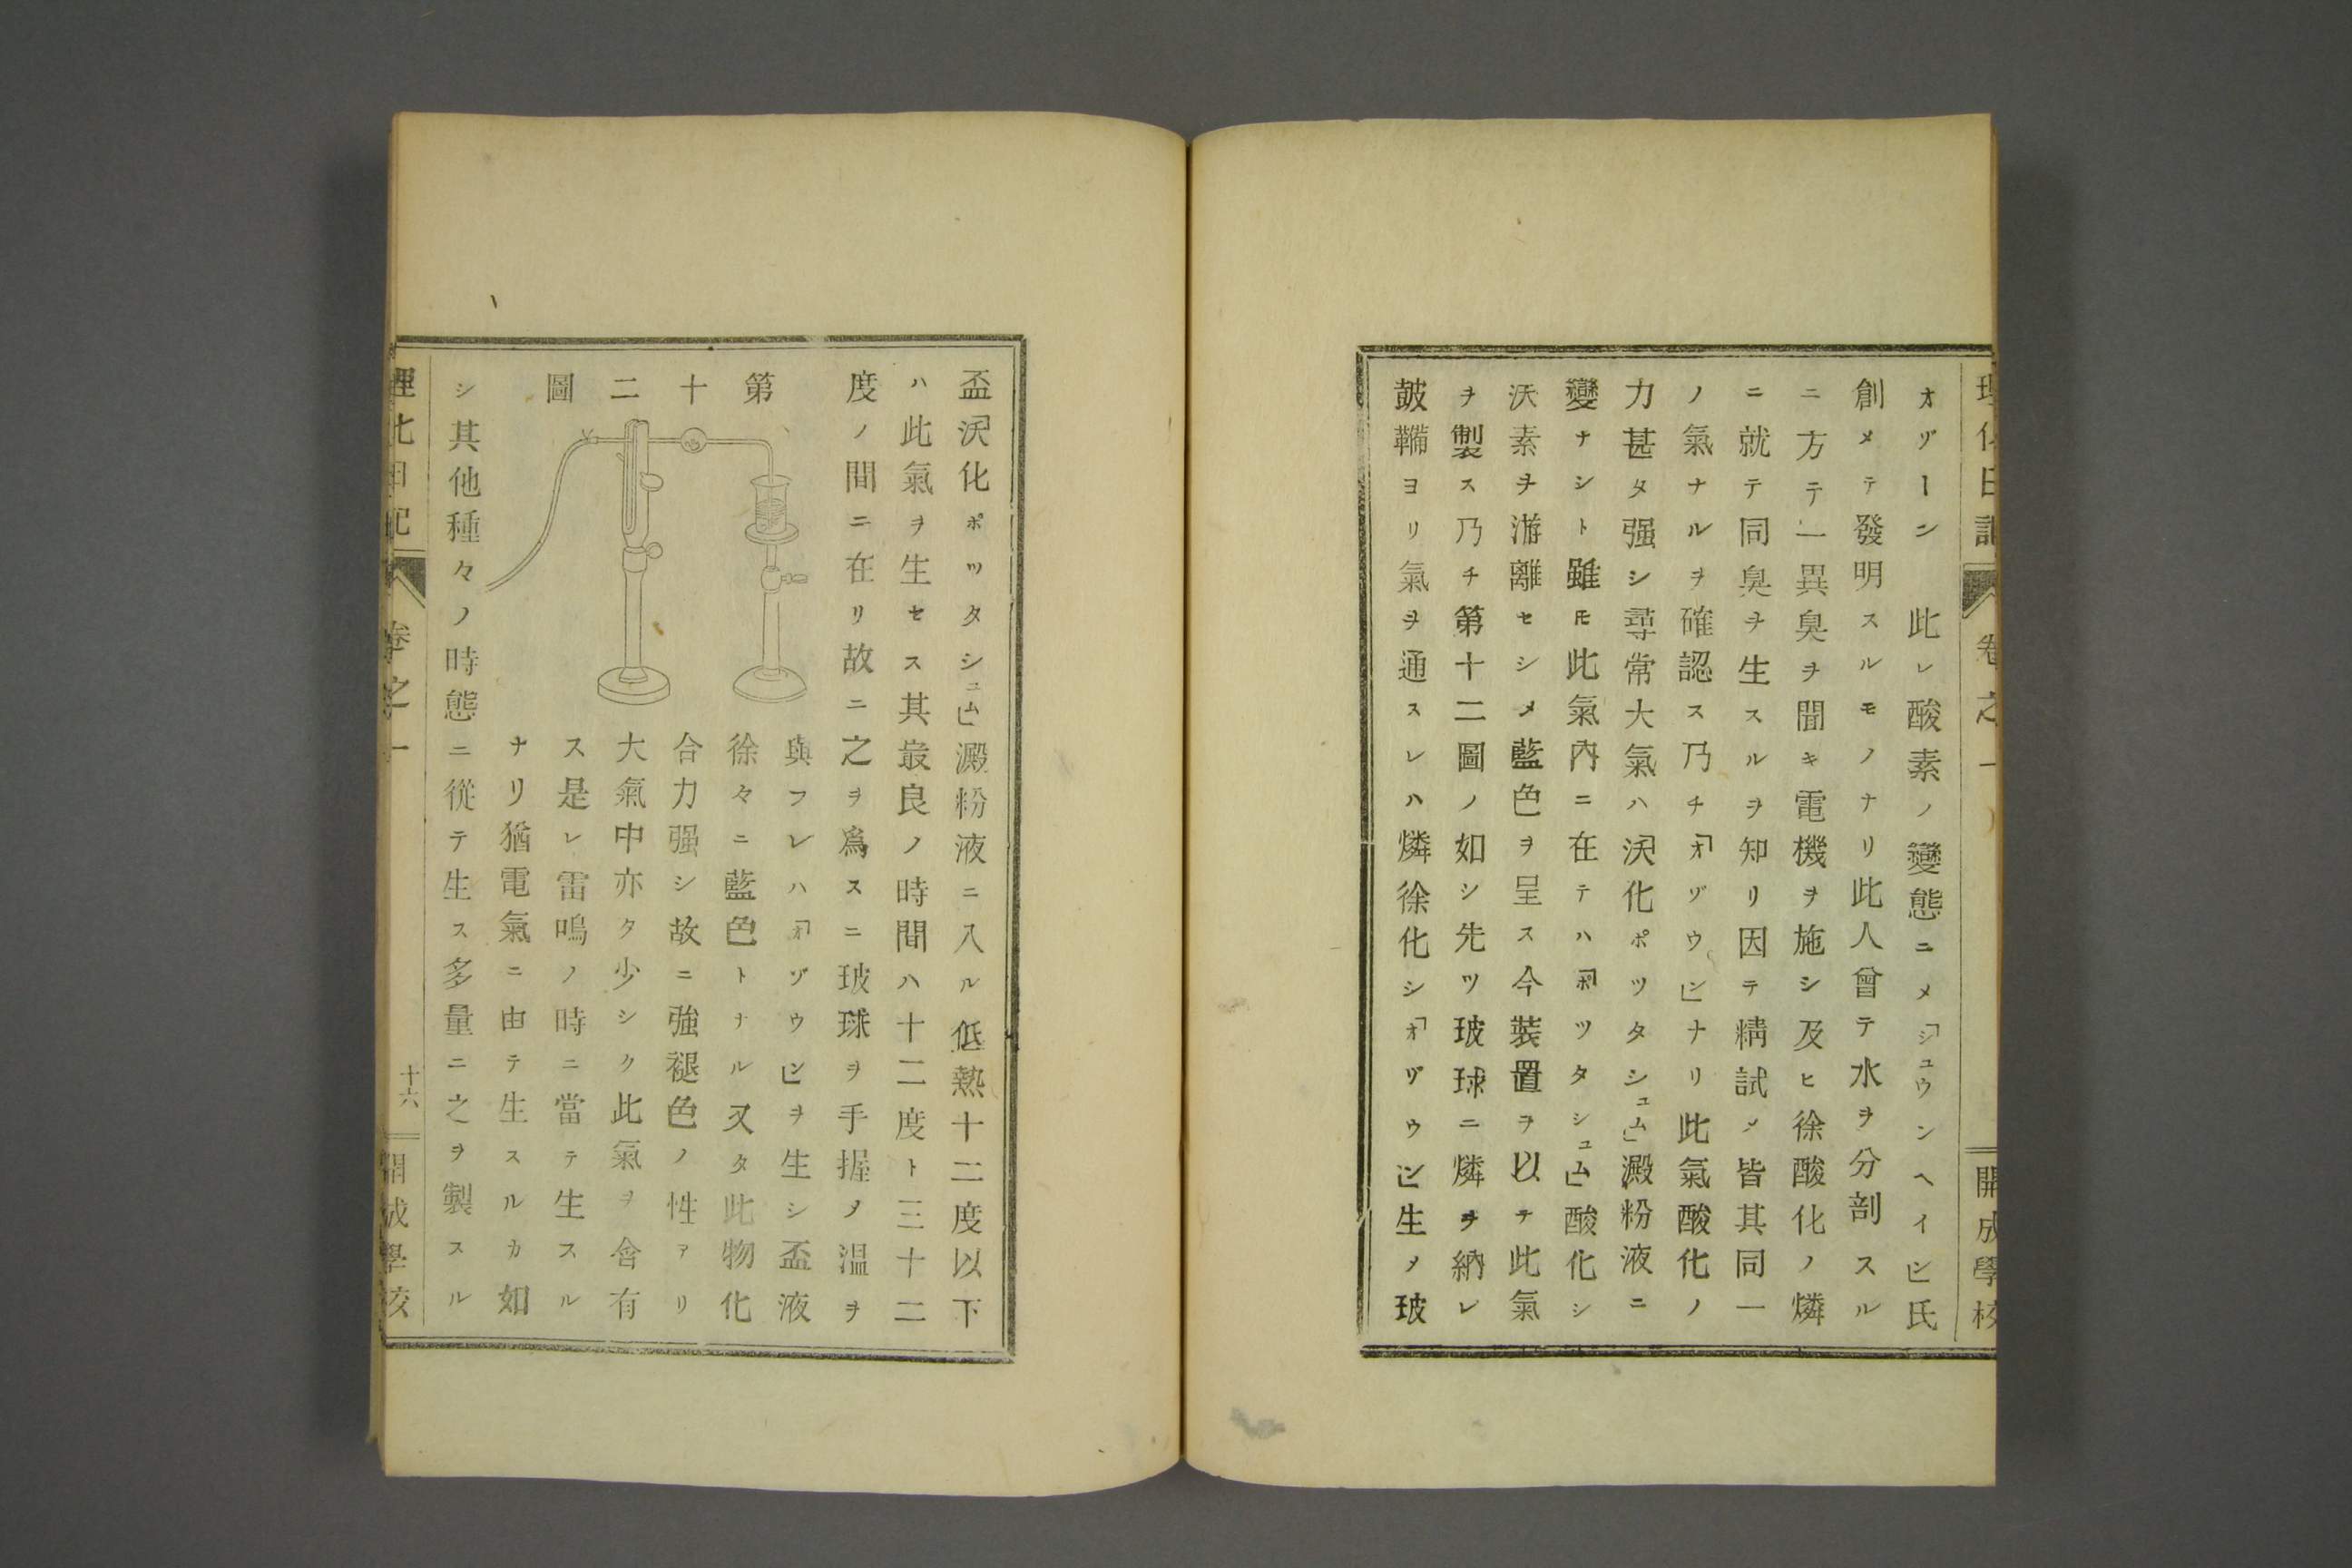 理化日記 卷之一 開成學校
オゾーン 此レ酸素ノ變態ニ〆「シュウンヘイン」氏
創メテ發明スルモノナリ此人曾テ水ヲ分剖スル
ニ方テ一異臭ヲ聞キ電機ヲ施シ及ヒ徐酸化ノ燐
ニ就テ同臭ヲ生スルヲ知リ因テ精試〆皆其同一
ノ氣ナルヲ確認ス乃チ「オゾウン」ナリ此氣酸化ノ
力甚タ强シ尋常大氣ハ「沃化ポツタシュム」澱粉液ニ
變ナシト雖𪜈此氣內ニ在テハ「ポツタシュム」酸化シ
沃素ヲ游離セシメ藍色ヲ呈ス今裝置ヲ以テ此氣
ヲ製ス乃チ第十二圖ノ如シ先ツ玻球ニ燐ヲ納レ
皷鞴ヨリ氣ヲ通スレハ燐徐化シ「オゾウン」生〆玻
盃「沃化ポツタシュム」澱粉液ニ入ル低熱十二度以下
ハ此氣ヲ生セス其最良ノ時間ハ十二度ト三十二
度ノ間ニ在リ故ニ之ヲ爲スニ玻球ヲ手握〆温ヲ
第十二圖
與フレハ「オゾウン」ヲ生シ盃液
徐々ニ藍色トナル又タ此物化
合力强シ故ニ強褪色ノ性アリ
大氣中亦タ少シク此氣ヲ含有
ス是レ雷鳴ノ時ニ當テ生スル
ナリ猶電氣ニ由テ生スルカ如
シ其他種々ノ時態ニ從テ生ス多量ニ之ヲ製スル
理化日記 卷之一 十六 開成學校